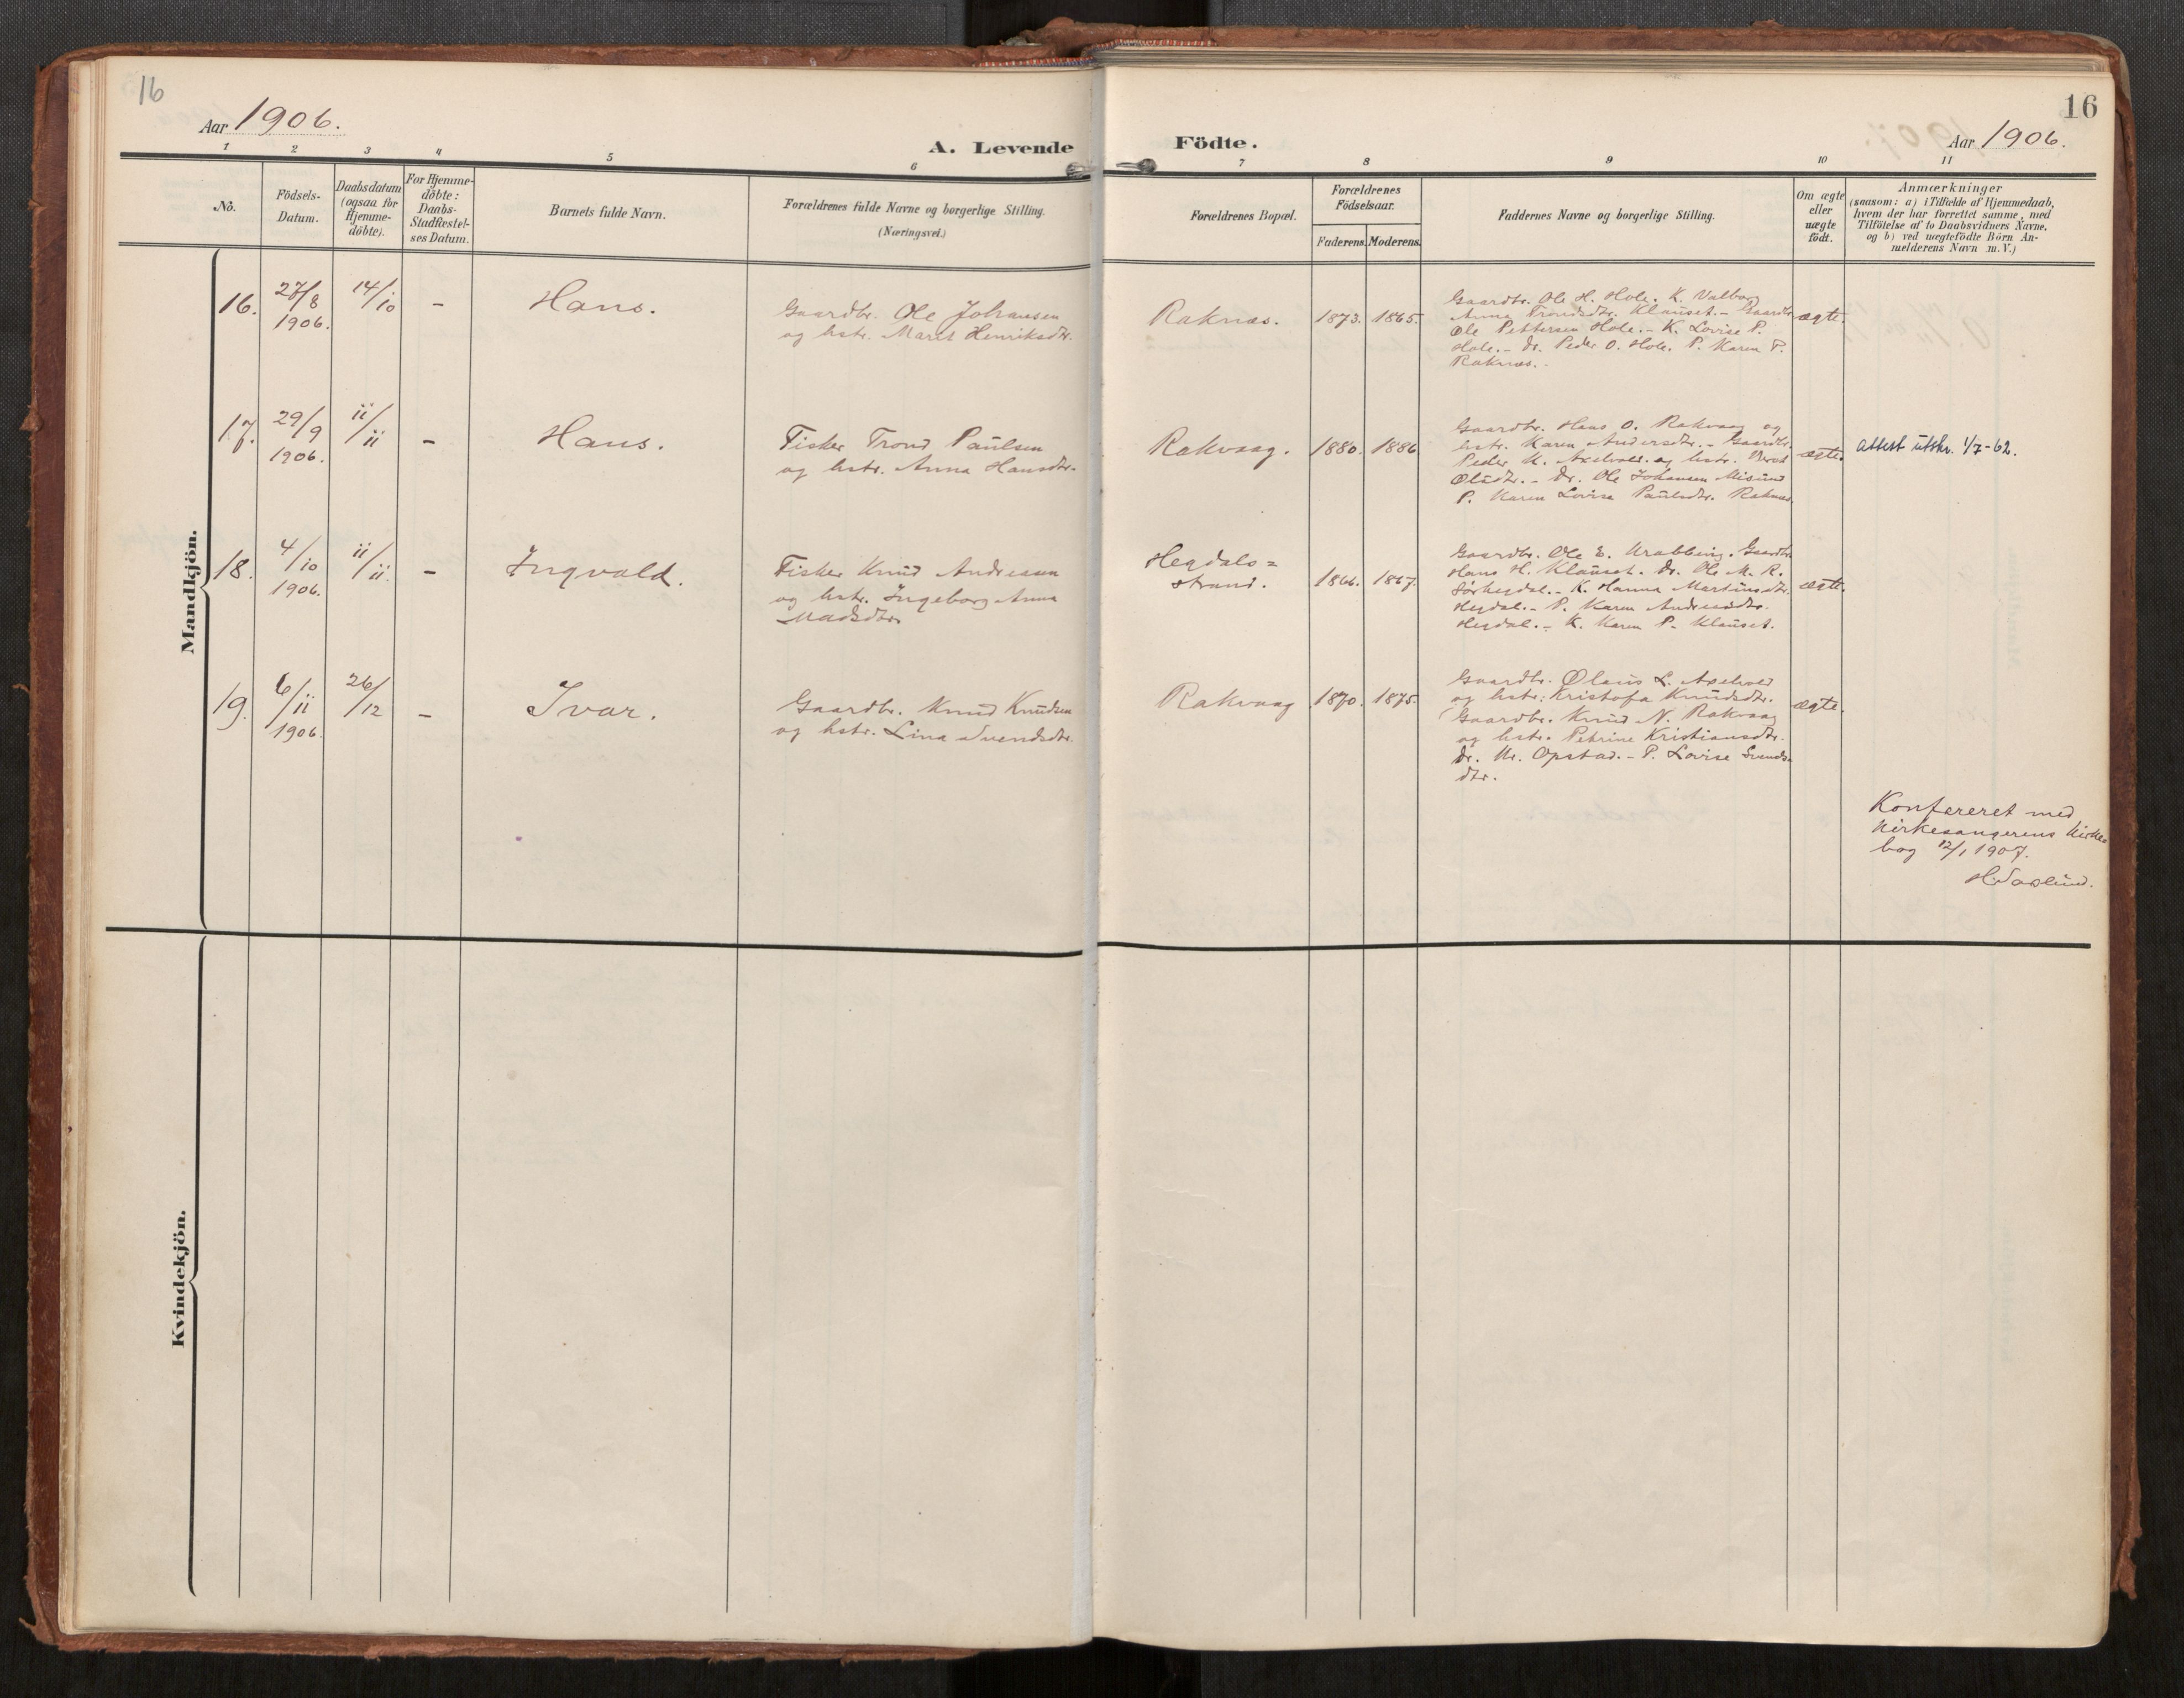 16
Aar 1906.
A. Levende
1 2 3 4 5 6
No.
Födsels-
Datum.
Daabsdatum
(ogsaa for
Hjemme-
döbte).
For Hjemme-
döbte:
Daabs-
Stadfæstel-
ses Datum.
Barnets fulde Navn.
Forældrenes fulde Navne og borgerlige Stilling.
(Næringsvei.)
Mandkjön.
16. 27/8 1906. 14/10 - Hans.
Gaardbr. Ole Johansen
og hstr. Marit Henriksdtr.
17. 29/9 1906. 11/11 - Hans.
Fisker Trond Paulsen
og hstr. Anna Hansdtr.
18. 4/10 1906. 11/11. - Ingvald.
Fisker Knud Andressen
og hstr. Ingeborg Anna
Madsdtr.
19. 6/11 1906. 26/12 - Ivar.
Gaardbr. Knud Knudsen
og hstr. Lina Svendsdtr.
Kvindekjön.
16
Födte.
Aar 1906.
7 8 9 10 11
Forældrenes Bopæl.
Forældrenes
Födselsaar.
Faderens. Moderens.
Faddernes Navne og borgerlige Stilling.
Om ægte
eller
uægte
födt.
Anmærkninger
(saasom: a) i Tilfælde af Hjemmedaab,
hvem der har forrettet samme, med
Tilföielse af to Daabsvidners Navne,
og b) ved uægtefödte Börn An-
melderens Navn m.V.)
Raknæs. 1873. 1865.
Gaardbr. Ole H. Hole. K. Valborg
Anna Trondsdtr. Klauset. - Gaardbr.
Ole Pettersen Hole. - K. Lovise P.
Hole. - Dr. Peder O. Hole. P. Karen P.
Raknæs. -
ægte.
Rakvaag. 1880. 1886
Gaardbr. Hans O. Rakvaag og
hstr. Karen Andersdtr. - Gaardbr.
Peder K. Axelvold og hstr. Berit
Olsdtr. - Dr. Ole Johansen Misund
P. Karen Lovise Paulsdtr. Raknæs.
ægte.
Attest utskr. 1/7-62.
Hegdals=
strand. 1866. 1867.
Gaardbr. Ole E. Krabbing. Gaardbr.
Hans H. Klauset. Dr. Ole M. R.
Sørhegdal. - K. Hanna Martinsdtr.
Hegdal. - P. Karen Andreasdtr.
Hegdal. - K. Karen P. Klauset.
ægte.
Rakvaag 1870. 1875.
Gaardbr. Olaus L. Axelvold
og hstr. Kristofa Knudsdtr.
Gaardbr. Knud N. Rakvaag
og hstr. Petrine Kristiansdtr.
Dr. Opstad. - P. Lovise Svends-
dtr.
ægte.
Konfereret med
Kirkesangerens Kirke
bog 12/1 1907.
H. Saxlund.